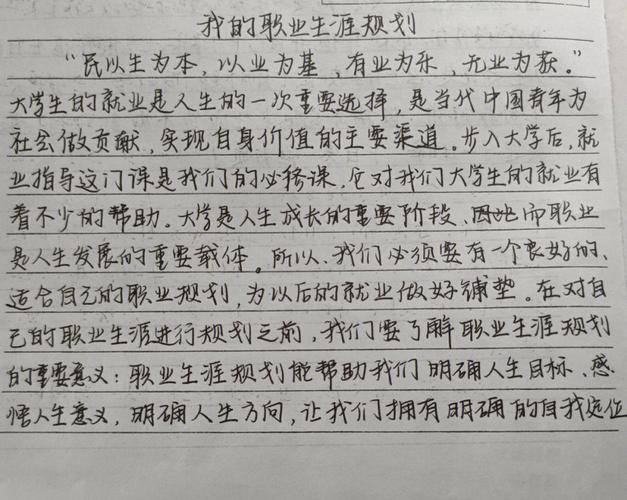 我的职业生涯规划
“民以生为本，以业为基，有业为乐，无业为获。”
大学生的就业是人生的一次重要选择，是当代中国青年为
社会做贡献，实现自身价值的主要渠道。步入大学后，就
业指导这门课是我们的必修课，它对我们大学生的就业有
着不少的帮助。大学是人生成长的重要阶段、而职业
是人生发展的重要载体。所以、我们必须要有一个良好的、
适合自己的职业规划，为以后的就业做好铺垫。在对自
己的职业生涯进行规划之前，我们要了解职业生涯规划
的重要意义：职业生涯规划能帮助我们明确人生目标、感
悟人生意义，明确人生方向，让我们拥有明确的自我定位